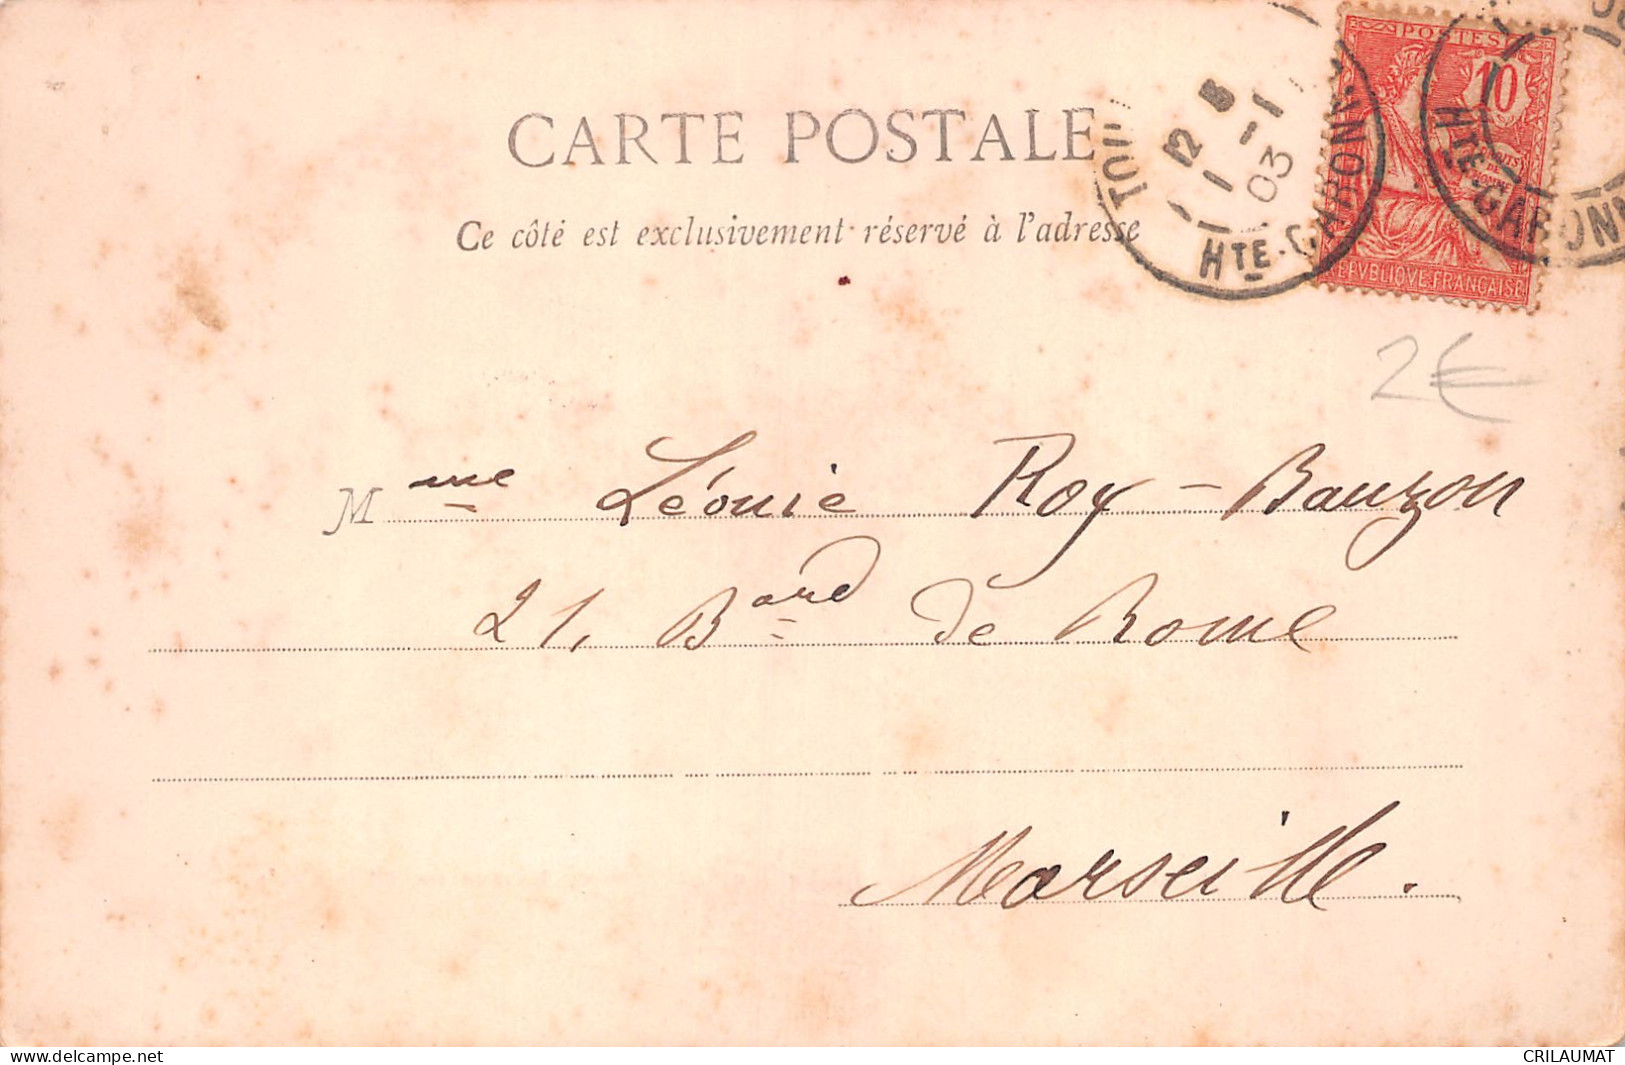 CARTE POSTALE
Ce côté est exclusivement réservé à l'adresse
POSTES
10
REPVBLIQVE FRANÇAISE
12
1 - 1
03
HTE-GARONNE
HTE-GARONNE
2€
Mme Léonie Roy - Bauzon
21, Bard de Rome
Marseille.
delcampe.net
CRILAUMAT